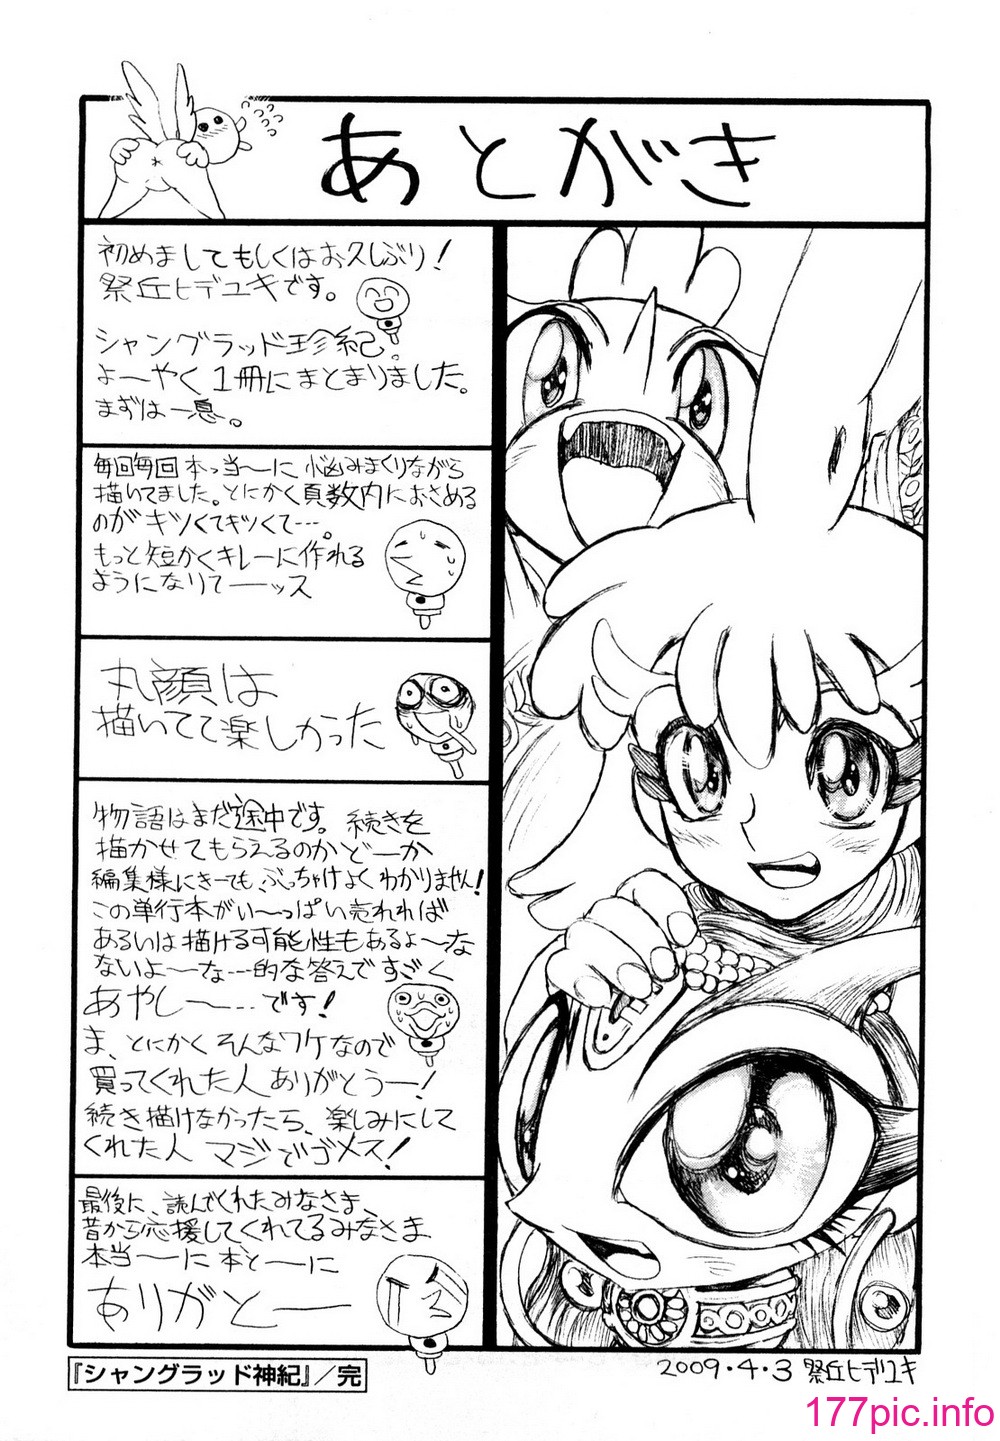 あとがき
初めましてもしくはお久しぶり!
祭丘ヒデユキです。
シャングラッド珍紀。
よ〜やく1冊にまとまりました。
まずは一息。
毎回毎回本っ当〜に悩みまくりながら
描いてました。とにかく頁数内におさめる
のがキツくてキツくて…。
もっと短かくキレーに作れる
ようになりてーーッス
丸顔は
描いてて楽しかった
物語はまだ途中です。続きを
描かせてもらえるのかどーか
編集様にきーても、ぶっちゃけよくわかりません!
この単行本がい〜っぱい売れれば
あるいは描ける可能性もあるよ〜な
ないよ〜な…的な答えですごく
あやし〜…です!
ま、とにかくそんなワケなので
買ってくれた人ありがとうー!
続き描けなかったら、楽しみにして
くれた人 マジでゴメス!
最後に、読んでくれたみなさま、
昔から応援してくれてるみなさま
本当〜に本とーーに
ありがとーー
2009.4.3 祭丘ヒデユキ
『シャングラッド神紀』/完
177pic.info